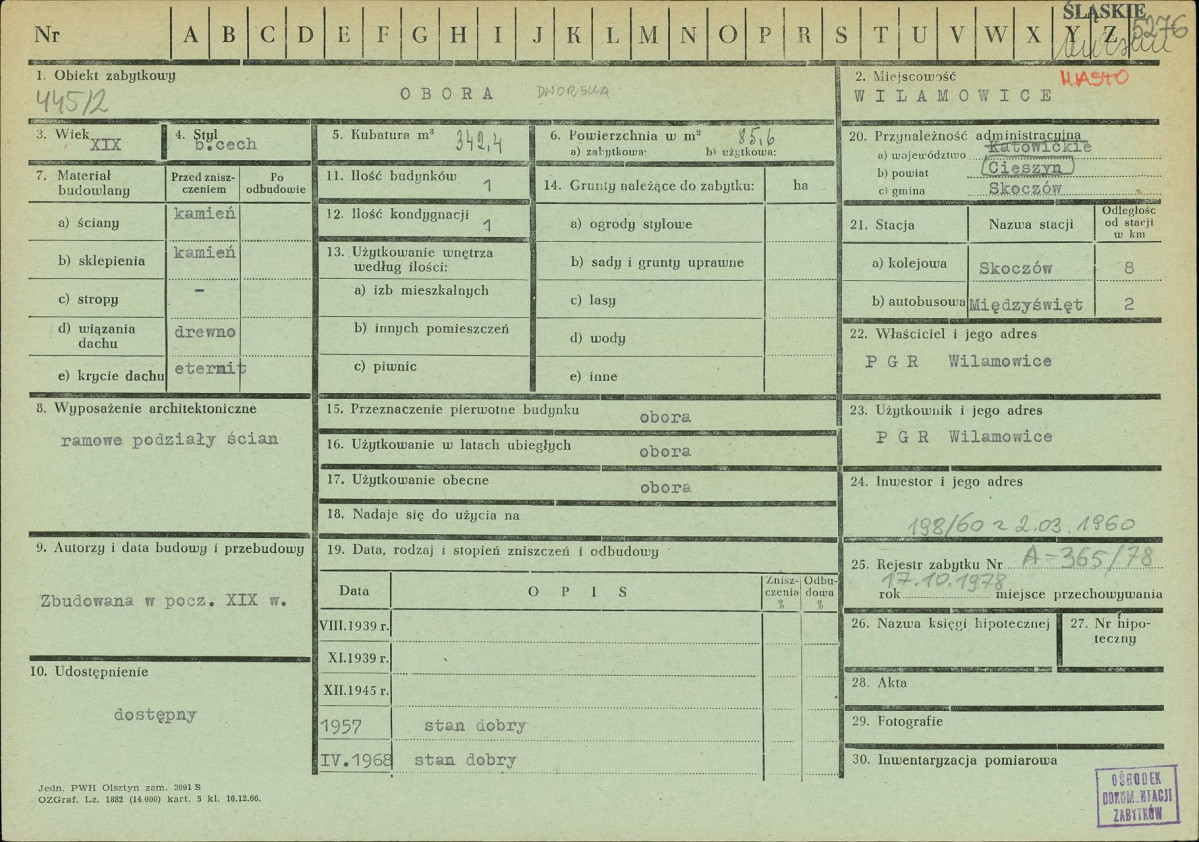 Nr A B C D E F G H I J K L M N O P R S T U V W X Y Z
ŚLĄSKIE
5276
1. Obiekt zabytkowy
445/2
OBORA DWORSKA
2. Miejscowość
MIASTO
WILAMOWICE
3. Wiek
XIX
4. Styl
b.cech
5. Kubatura m³
342,4
6. Powierzchnia w m²
85,6
a) zabytkowa: b) użytkowa:
7. Materiał budowlany
Przed zniszczeniem
Po odbudowie
a) ściany
kamień
b) sklepienia
kamień
c) stropy
–
d) wiązania dachu
drewno
e) krycie dachu
eternit
8. Wyposażenie architektoniczne
ramowe podziały ścian
9. Autorzy i data budowy i przebudowy
Zbudowana w pocz. XIX w.
10. Udostępnienie
dostępny
11. Ilość budynków
1
12. Ilość kondygnacji
1
13. Użytkowanie wnętrza według ilości:
a) izb mieszkalnych
b) innych pomieszczeń
c) piwnic
14. Grunty należące do zabytku:
ha
a) ogrody stylowe
b) sady i grunty uprawne
c) lasy
d) wody
e) inne
15. Przeznaczenie pierwotne budynku
obora
16. Użytkowanie w latach ubiegłych
obora
17. Użytkowanie obecne
obora
18. Nadaje się do użycia na
19. Data, rodzaj i stopień zniszczeń i odbudowy
Data
OPIS
Zniszczenia %
Odbudowa %
VIII.1939 r.
XI.1939 r.
XII.1945 r.
1957
stan dobry
IV.1968
stan dobry
20. Przynależność administracyjna
a) województwo
Katowickie
b) powiat
Cieszyn
c) gmina
Skoczów
21. Stacja
Nazwa stacji
Odległość od stacji w km
a) kolejowa
Skoczów
8
b) autobusowa
Międzyświęt
2
22. Właściciel i jego adres
PGR Wilamowice
23. Użytkownik i jego adres
PGR Wilamowice
24. Inwestor i jego adres
198/60 z 2.03.1960
25. Rejestr zabytku Nr
A-365/78
17.10.1978
rok
miejsce przechowywania
26. Nazwa księgi hipotecznej
27. Nr hipoteczny
28. Akta
29. Fotografie
30. Inwentaryzacja pomiarowa
Jedn. PWH Olsztyn zam. 3991 S
OZGraf. Lz. 1882 (14.000) kart. 5 kl. 16.12.66.
OŚRODEK
DOKUMENTACJI
ZABYTKÓW